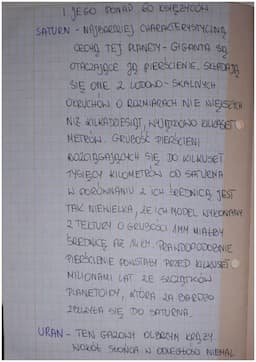 I JEGO PONAD 60 KSIĘŻYCÓW
SATURN - NAJBARDZIEJ CHARAKTERYSTYCZNĄ
CECHĄ TEJ PLANETY-GIGANTA SĄ
OTACZAJĄCE JĄ PIERŚCIENIE. SKŁADAJĄ
SIĘ ONE Z LODOWO-SKALNYCH
OKRUCHÓW O ROZMIARACH NIE WIĘKSZYCH
NIŻ KILKADZIESIĄT, WYJĄTKOWO KILKASET
METRÓW. GRUBOŚĆ PIERŚCIENI
ROZCIĄGAJĄCYCH SIĘ DO KILKUSET
TYSIĘCY KILOMETRÓW OD SATURNA
W PORÓWNANIU Z ICH ŚREDNICĄ JEST
TAK NIEWIELKA, ŻE ICH MODEL WYKONANY
Z TEKTURY O GRUBOŚCI 1MM MIAŁBY
ŚREDNICĘ AŻ PRAWDOPODOBNIE
PIERŚCIENIE POWSTAŁY PRZED KILKUSET
MILIONAMI LAT ZE SZCZĄTKÓW
PLANETOIDY, KTÓRA ZA BARDZO
ZBLIŻYŁA SIĘ DO SATURNA.
URAN - TEN GAZOWY OLBRZYM KRĄŻY
WOKÓŁ SŁOŃCA W ODLEGŁOŚCI NIEMAL